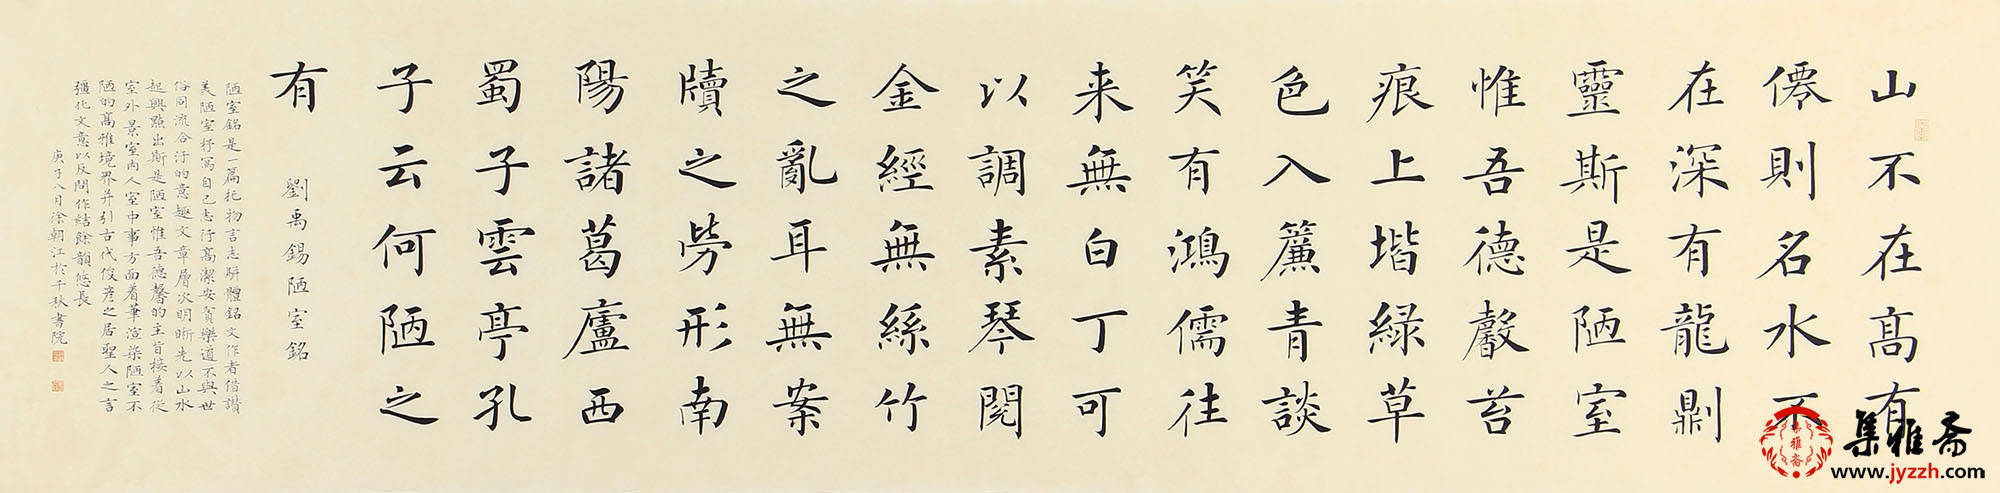 山不在高有
僊則名水不
在深有龍劓
靈斯是陋室
惟吾德馨苔
痕上堦緑草
色入簾青談
笑有鴻儒往
来無白丁可
以調素琴閱
金經無絲竹
之亂耳無案
牘之勞形南
陽諸葛廬西
蜀子雲亭孔
子云何陋之
有
劉禹錫陋室銘
陋室銘是一篇托物言志駢體銘文作者借讚
美陋室抒寫自己志行高潔安貧樂道不與世
俗同流合汙的意趣文章層次明晰先以山水
起興點出斯是陋室惟吾德馨的主旨接着從
室外景室內人室中事方面着筆渲染陋室不
陋的高雅境界并引古代俊彥之居聖人之言
彊化文意以反問作結餘韻悠長
庚子八月涂朝江於千秋書院
集雅斋
www.jyzzh.com